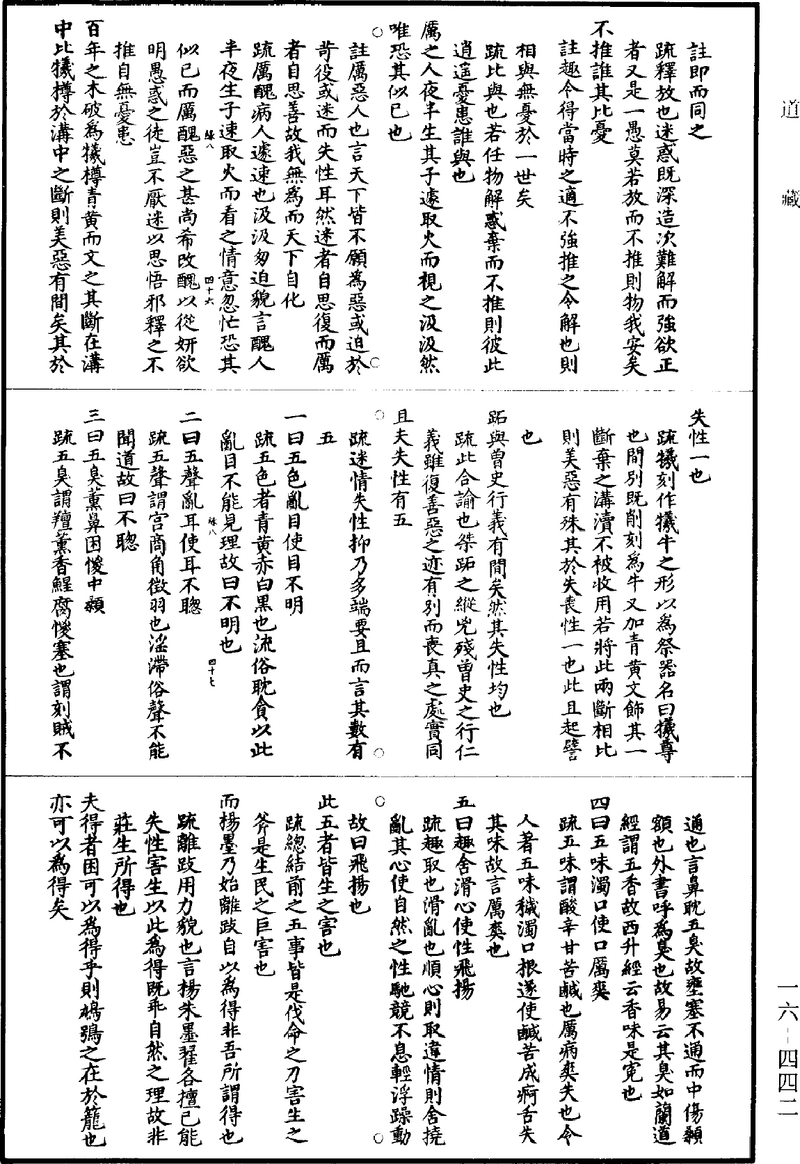 道藏
註即而同之
疏釋放也迷惑既深造次難解而強欲正
者又是一愚莫若放而不推則物我安矣
不推誰其比憂
註趣令得當時之適不強推之令解也則
相與無憂於一世矣
疏比與也若任物解惑棄而不推則彼此
逍遥憂患誰與也
厲之人夜半生其子遽取火而視之汲汲然
唯恐其似已也
註厲惡人也言天下皆不願為惡或迫於
苛役或迷而失性耳然迷者自思復而厲
者自思善故我無為而天下自化
疏厲醜病人遽速也汲汲匆迫貌言醜人
半夜生子速取火而看之情意忽忙恐其
似已而厲醜惡之甚尚希改醜以從妍欲
明愚惑之徒豈不厭迷以思悟邪釋之不
推自無憂患
百年之木破為犧樽青黄而文之其斷在溝
中比犧樽於溝中之斷則美惡有間矣其於
八
四十六
失性一也
疏犧刻作犧牛之形以為祭器名曰犧尊
也間别既削刻為牛又加青黄文飾其一
斷棄之溝瀆不被收用若將此兩斷相比
則美惡有殊其於失喪性一也此且起譬
也
跖與曾史行義有間矣然其失性均也
疏此合諭也桀跖之縱兇殘曾史之行仁
義雖復善惡之迹有别而喪真之處實同
且夫失性有五
疏迷情失性抑乃多端要且而言其數有
五
一曰五色亂目使目不明
疏五色者青黄赤白黑也流俗耽貪以此
亂目不能見理故曰不明也
二曰五聲亂耳使耳不聰
疏五聲謂宫商角徵羽也淫滯俗聲不能
聞道故曰不聰
三曰五臭熏鼻困惾中顙
疏五臭謂羶薰香鯹腐惾塞也謂刻賊不
八
四十七
通也言鼻耽五臭故壅塞不通而中傷顙
額也外書呼為臭也故易云其臭如蘭道
經謂五香故西升經云香味是冤也
四曰五味濁口使口厲爽
疏五味謂酸辛甘苦鹹也厲病爽失也令
人著五味穢濁口根遂使鹹苦成痾舌失
其味故言厲爽也
五曰趣舍滑心使性飛揚
疏趣取也滑亂也順心則取違情則舍撓
亂其心使自然之性馳競不息輕浮躁動
故曰飛揚也
此五者皆生之害也
疏總結前之五事皆是伐命之刀害生之
斧是生民之巨害也
而楊墨乃始離跂自以為得非吾所謂得也
疏離跂用力貌也言楊朱墨翟各擅已能
失性害生以此為得既乖自然之理故非
莊生所得也
夫得者困可以為得乎則鳩鴞之在於籠也
亦可以為得矣
一六-四四二